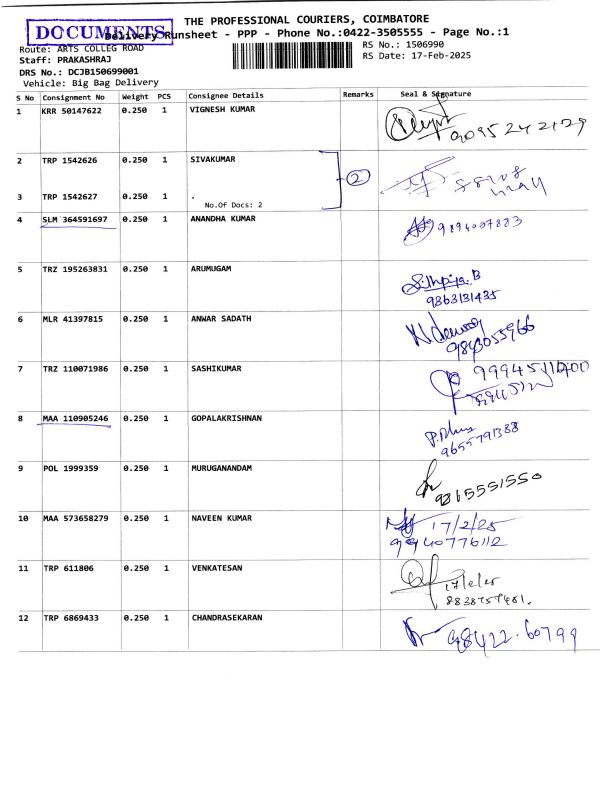 THE PROFESSIONAL COURIERS, COIMBATORE
DOCUMENTS
Delivery Runsheet - PPP - Phone No.:0422-3505555 - Page No.:1
Route: ARTS COLLEG ROAD
RS No.: 1506990
Staff: PRAKASHRAJ
RS Date: 17-Feb-2025
DRS No.: DCJB150699001
Vehicle: Big Bag Delivery
S No Consignment No Weight PCS Consignee Details Remarks Seal & Signature
1 KRR 50147622 0.250 1 VIGNESH KUMAR
9095242129
2 TRP 1542626 0.250 1 SIVAKUMAR
2
3 TRP 1542627 0.250 1 .
No.Of Docs: 2
4 SLM 364591697 0.250 1 ANANDHA KUMAR 9894007883
5 TRZ 195263831 0.250 1 ARUMUGAM
9363131435
6 MLR 41397815 0.250 1 ANWAR SADATH
9843055966
7 TRZ 110071986 0.250 1 SASHIKUMAR
8 MAA 110905246 0.250 1 GOPALAKRISHNAN
9655791388
9 POL 1999359 0.250 1 MURUGANANDAM
9365551550
10 MAA 573658279 0.250 1 NAVEEN KUMAR 17/2/25
9940776112
11 TRP 611806 0.250 1 VENKATESAN
12 TRP 6869433 0.250 1 CHANDRASEKARAN 98422.60799